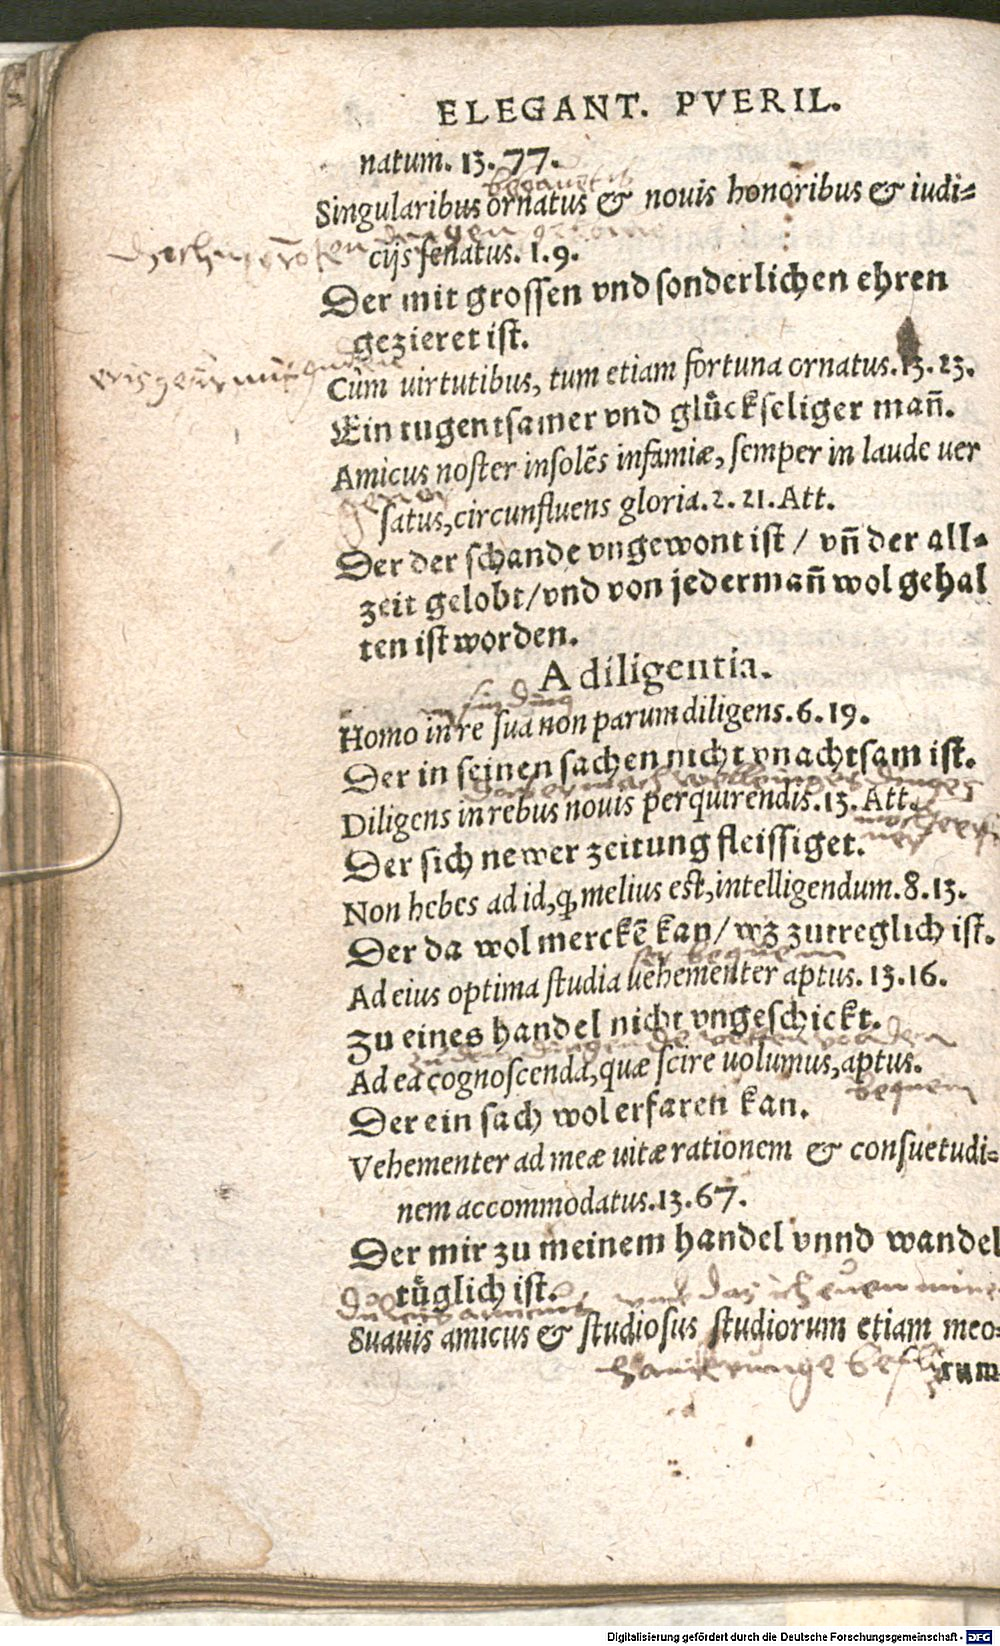 ELEGANT. PVERIL.
natum. 13. 77.
Singularibus ornatus & nouis honoribus & iudi=
cijs senatus. 1. 9.
Der mit grossen vnd sonderlichen ehren
gezieret ist.
Cùm virtutibus, tum etiam fortuna ornatus. 13. 23.
Ein tugentsamer vnd glůckseliger man̄.
Amicus noster insolẽs infamiæ, semper in laude uer
satus, circunfluens gloria. 2. 21. Att.
Der der schande vngewont ist / vn̄ der all=
zeit gelobt/vnd von jederman̄ wol gehal
ten ist worden.
A diligentia.
Homo in re sua non parum diligens. 6. 19.
Der in seinen sachen nicht vnachtsam ist.
Diligens in rebus nouis perquirendis. 13. Att.
Der sich newer zeitung fleissiget.
Non hebes ad id, ꝙ melius est, intelligendum. 8. 13.
Der da wol merckẽ kan/ wz zutreglich ist.
bequem
Ad eius optima studia uehementer aptus. 13. 16.
Zu eines handel nicht vngeschickt.
Ad ea cognoscenda, quæ scire uolumus, aptus.
bequem
Der ein sach wol erfaren kan.
Vehementer ad meæ uitæ rationem & consuetudi=
nem accommodatus. 13. 67.
Der mir zu meinem handel vnnd wandel
tůglich ist.
Suauis amicus & studiosus studiorum etiam meo=
rum
Digitalisierung gefördert durch die Deutsche Forschungsgemeinschaft - DFG